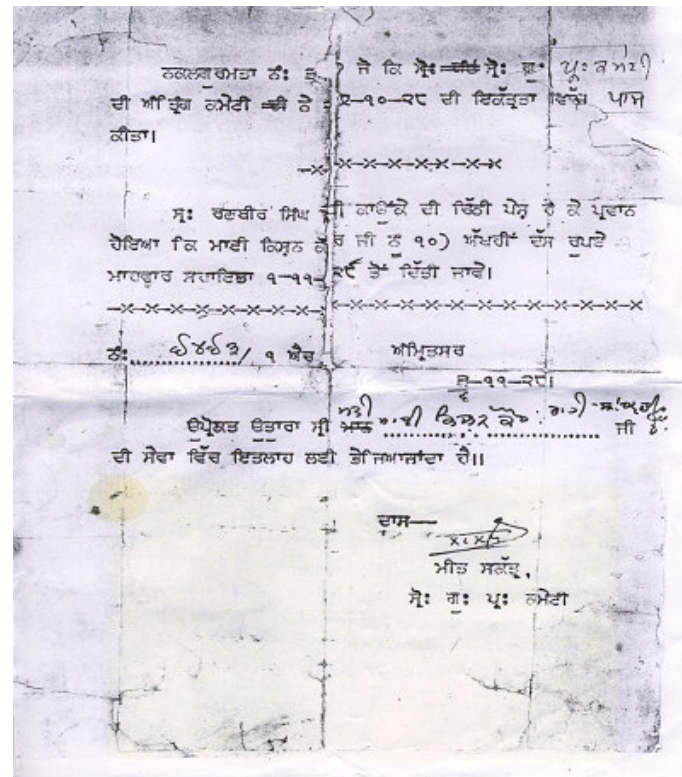 ਨਕਲਗੁਰਮਤਾ ਨੰ: ੩ ਜੋ ਕਿ ਸ੍ਰੋ: ਸ੍ਰੋ: ਗੁ: ਪ੍ਰ: ਕਮੇਟੀ
ਦੀ ਅੰਤ੍ਰਿੰਗ ਕਮੇਟੀ ਨੇ ੬-੧੦-੨੮ ਦੀ ਇਕੱਤ੍ਰਤਾ ਵਿੱਚ ਪਾਸ
ਕੀਤਾ।
-x-x-x-x-x-x-x
ਸ੍ਰ: ਰਣਬੀਰ ਸਿੰਘ ਜੀ ਕਾਉਂਕੇ ਦੀ ਚਿੱਠੀ ਪੇਸ਼ ਹੋ ਕੇ ਪ੍ਰਵਾਨ
ਹੋਇਆ ਕਿ ਮਾਈ ਕਿਸ਼ਨ ਕੌਰ ਜੀ ਨੂੰ ੧੦) ਅੱਖਰੀਂ ਦੱਸ ਰੁਪਏ
ਮਾਹਵਾਰ ਸਹਾਇਤਾ ੧-੧੧-੨੮ ਤੋਂ ਦਿੱਤੀ ਜਾਵੇ।
-x-x-x-x-x-x-x-x-x-x-x-x-x-x-x-x-x-x
ਨੰ: / ੧ ਐਚ ਅੰਮ੍ਰਿਤਸਰ
-੧੧-੨੮।
ਉਪ੍ਰੋਕਤ ਉਤਾਰਾ ਸ੍ਰੀ ਮਤੀ ਮਾਈ ਕਿਸ਼ਨ ਕੌਰ ਜੀ
ਦੀ ਸੇਵਾ ਵਿੱਚ ਇਤਲਾਹ ਲਈ ਭੇਜਿਆਜਾਂਦਾ ਹੈ॥
ਦਾਸ—
ਮੀਤ ਸਕੱਤ੍ਰ,
ਸ੍ਰੋ: ਗੁ: ਪ੍ਰ: ਕਮੇਟੀ